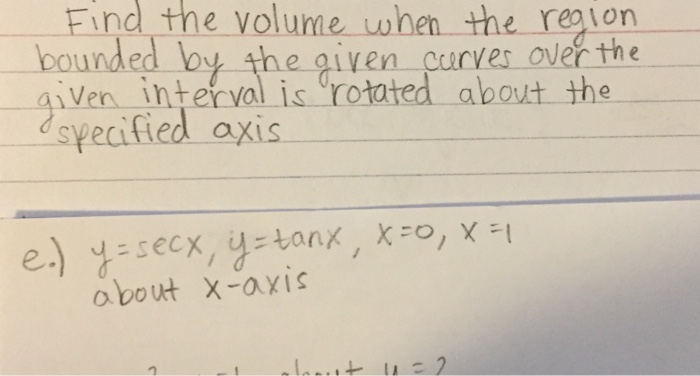 Find the volume when the region
bounded by the given curves over the
given interval is rotated about the
specified axis
e.) y=secx, y=tanx, x=0, x=1
about x-axis